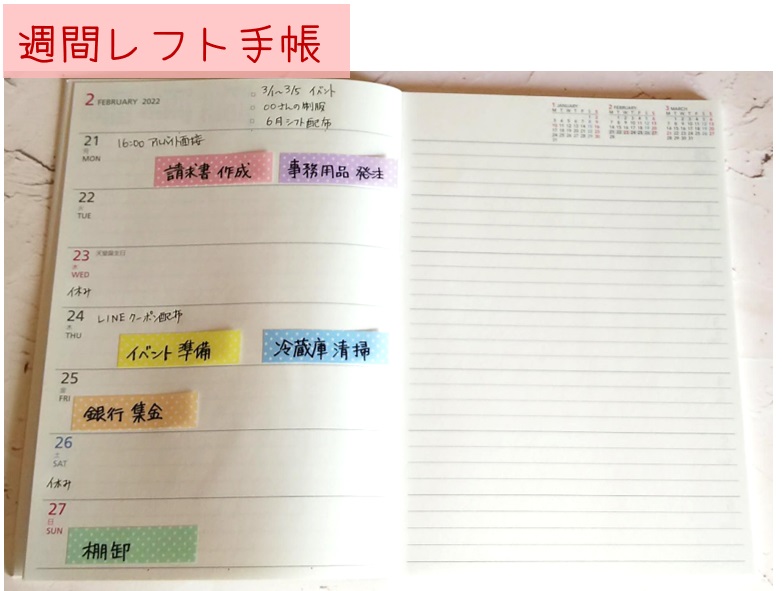 週間レフト手帳
2 FEBRUARY 2022
3/1~3/5 イベント
○○さんの制服
6月シフト配布
21
月
MON
16:00 アルバイト面接
請求書 作成
事務用品 発注
22
火
TUE
23
水
WED
天皇誕生日
休み
24
木
THU
LINE クーポン配布
イベント 準備
冷蔵庫 清掃
25
金
FRI
銀行 集金
26
土
SAT
休み
27
日
SUN
棚卸
1 JANUARY
M T W T F S S
2 FEBRUARY
M T W T F S S
3 MARCH
M T W T F S S